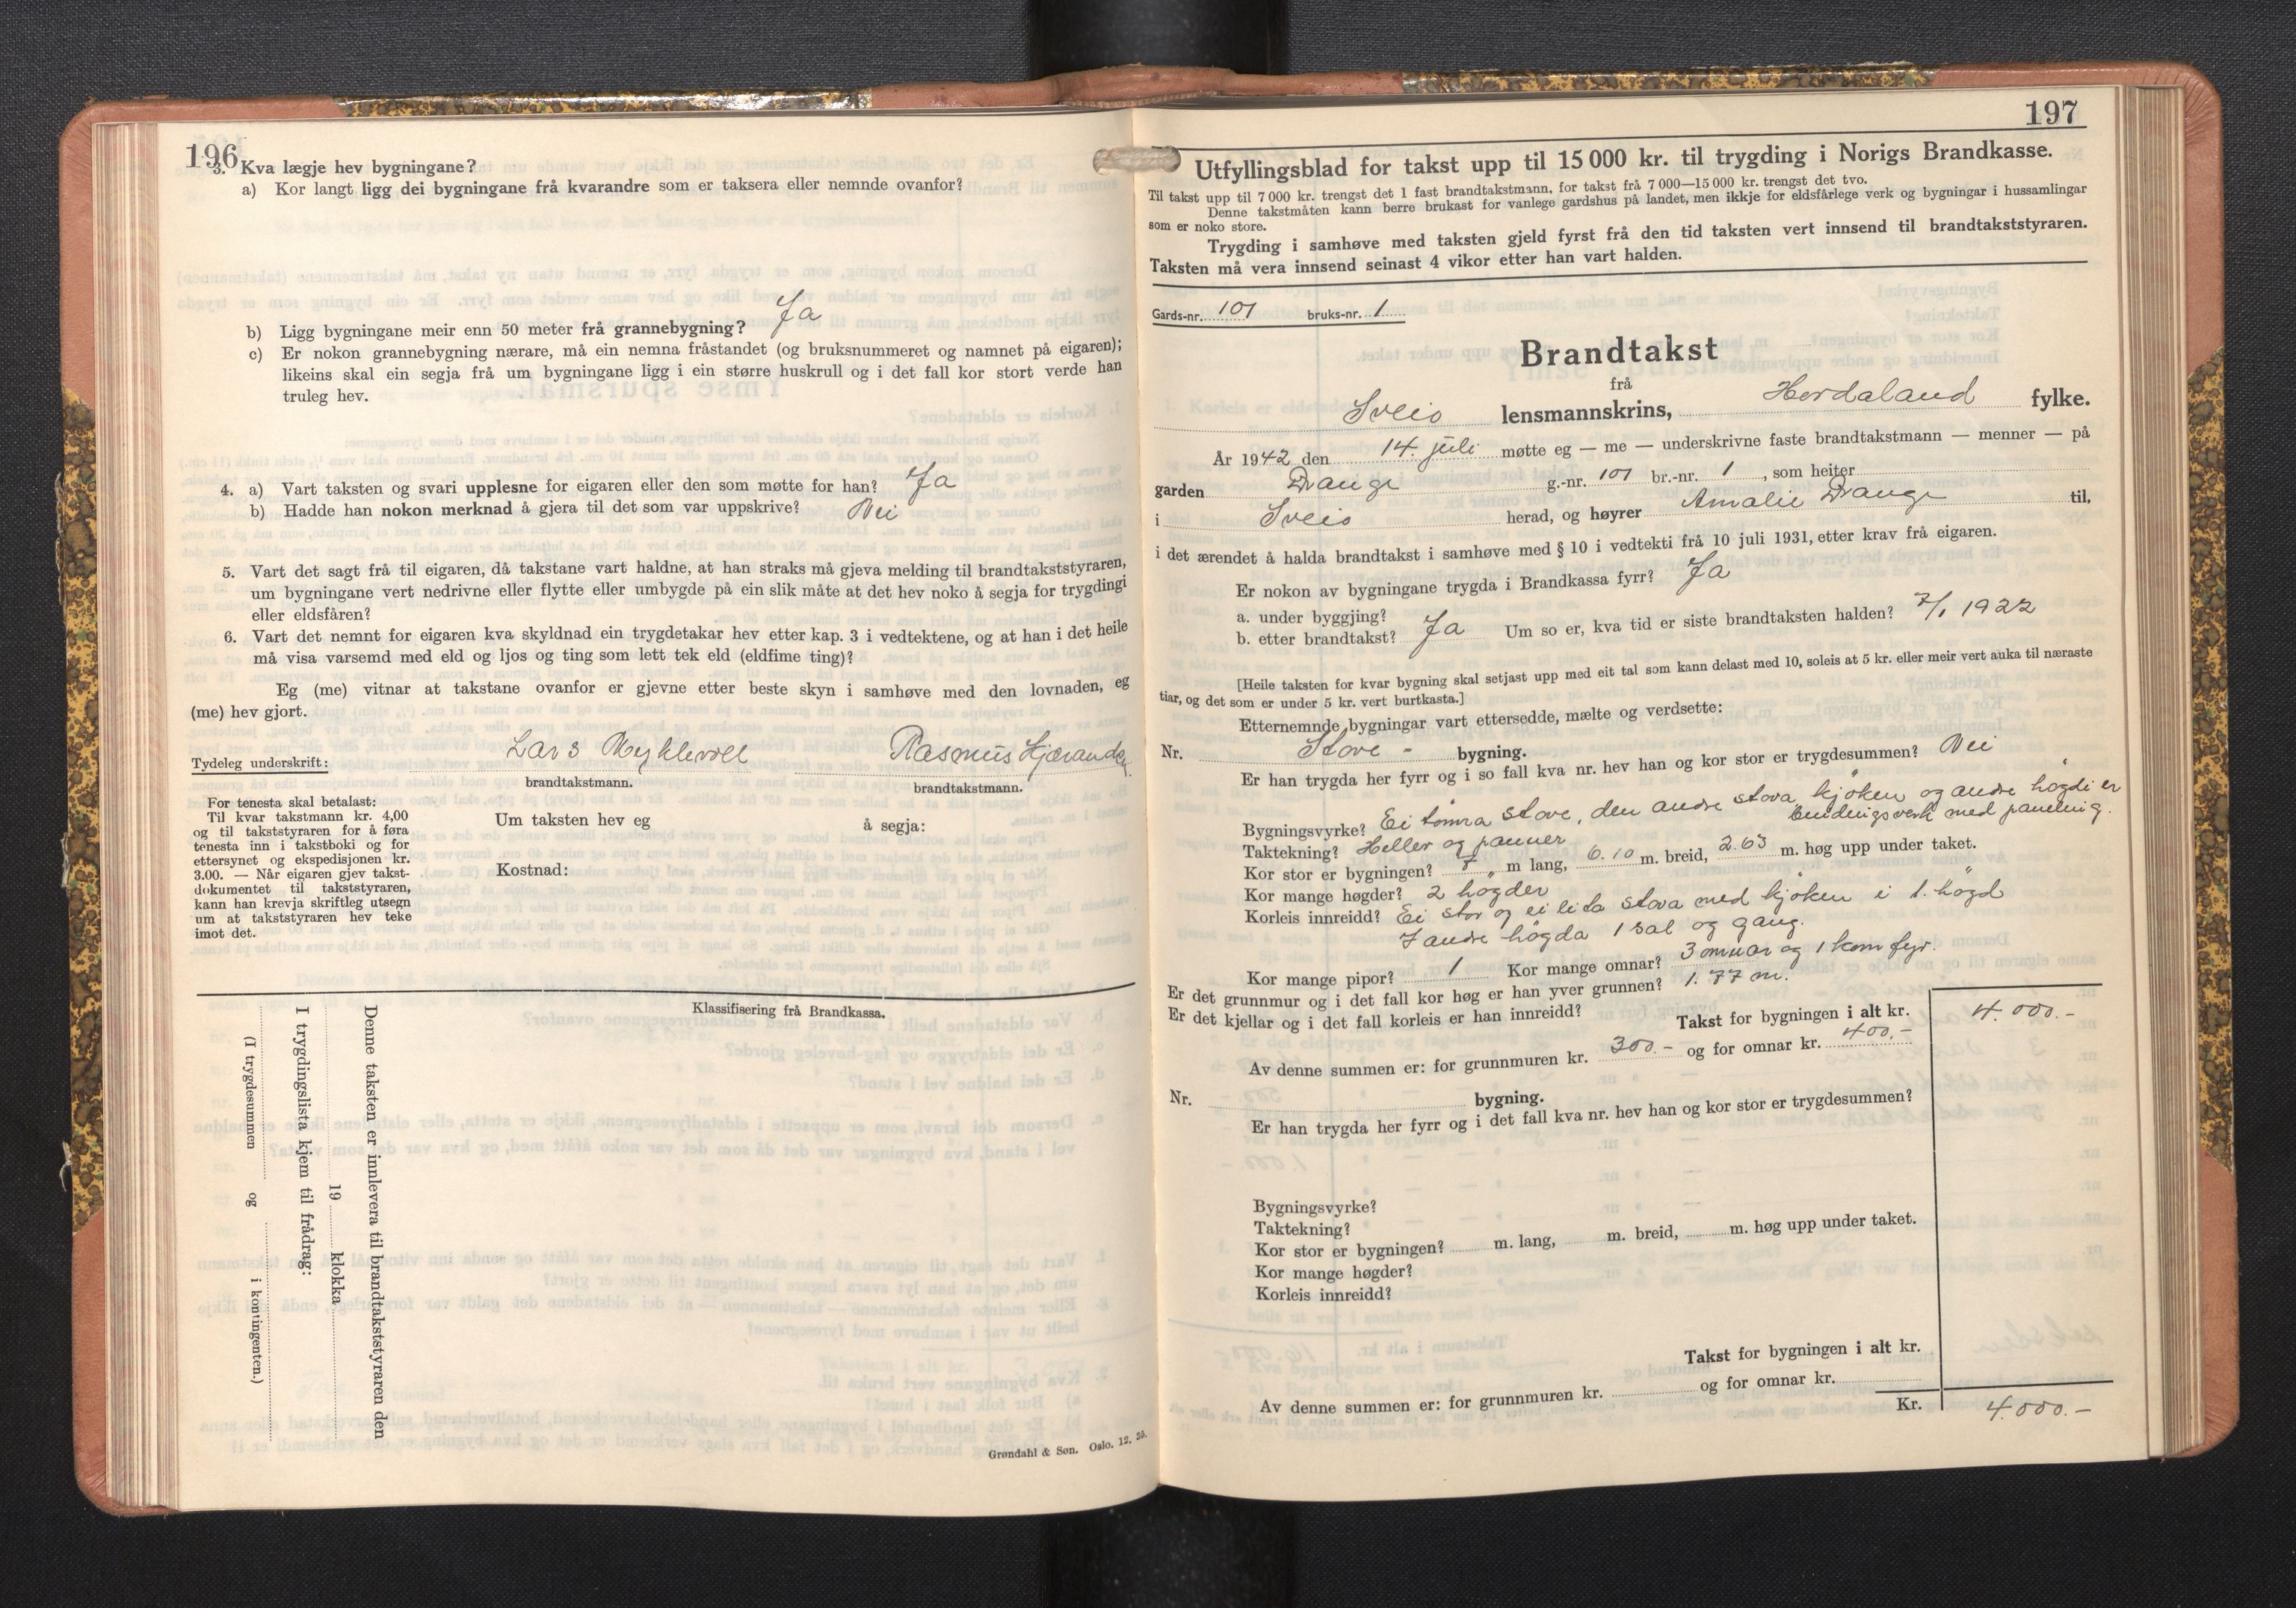 196
3. Kva lægje hev bygningane?
a) Kor langt ligg dei bygningane frå kvarandre som er taksera eller nemnde ovanfor?
b) Ligg bygningane meir enn 50 meter frå grannebygning? Ja
c) Er nokon grannebygning nærare, må ein nemna fråstandet (og bruksnummeret og namnet på eigaren);
likeins skal ein segja frå um bygningane ligg i ein større huskrull og i det fall kor stort verde han
truleg hev.
4. a) Vart taksten og svari upplesne for eigaren eller den som møtte for han? Ja
b) Hadde han nokon merknad å gjera til det som var uppskrive? Nei
5. Vart det sagt frå til eigaren, då takstane vart haldne, at han straks må gjeva melding til brandtakststyraren,
um bygningane vert nedrivne eller flytte eller umbygde på ein slik måte at det hev noko å segja for trygdingi
eller eldsfåren?
6. Vart det nemnt for eigaren kva skyldnad ein trygdetakar hev etter kap. 3 i vedtektene, og at han i det heile
må visa varsemd med eld og ljos og ting som lett tek eld (eldfime ting)?
Eg (me) vitnar at takstane ovanfor er gjevne etter beste skyn i samhøve med den lovnaden, eg
(me) hev gjort.
Tydeleg underskrift: Lars Rasmus
brandtakstmann. brandtakstmann.
For tenesta skal betalast:
Til kvar takstmann kr. 4,00
og til takststyraren for å føra
tenesta inn i takstboki og for
ettersynet og ekspedisjonen kr.
3.00. — Når eigaren gjev takst-
dokumentet til takststyraren,
kann han krevja skriftleg utsegn
um at takststyraren hev teke
imot det.
Um taksten hev eg å segja:
Kostnad:
Klassifisering frå Brandkassa.
Denne taksten er innlevera til brandtakststyraren den
19 klokka
I trygdingslista kjem til frådrag:
(I trygdesummen og i kontingenten.)
Grøndahl & Søn. Oslo. 12. 35.
197
Utfyllingsblad for takst upp til 15 000 kr. til trygding i Norigs Brandkasse.
Til takst upp til 7 000 kr. trengst det 1 fast brandtakstmann, for takst frå 7 000—15 000 kr. trengst det tvo.
Denne takstmåten kann berre brukast for vanlege gardshus på landet, men ikkje for eldsfårlege verk og bygningar i hussamlingar
som er noko store.
Trygding i samhøve med taksten gjeld fyrst frå den tid taksten vert innsend til brandtakststyraren.
Taksten må vera innsend seinast 4 vikor etter han vart halden.
Gards-nr. 101 bruks-nr. 1
Brandtakst
frå
Sveio lensmannskrins, Hordaland fylke.
År 1942 den 14. juli møtte eg — me — underskrivne faste brandtakstmann — menner — på
garden Drange g.-nr. 101 br.-nr. 1, som heiter
i Sveio herad, og høyrer Amalie Drange til,
i det ærendet å halda brandtakst i samhøve med § 10 i vedtekti frå 10 juli 1931, etter krav frå eigaren.
Er nokon av bygningane trygda i Brandkassa fyrr? Ja
a. under byggjing?
b. etter brandtakst? Ja Um so er, kva tid er siste brandtaksten halden? 7/1 1922
[Heile taksten for kvar bygning skal setjast upp med eit tal som kann delast med 10, soleis at 5 kr. eller meir vert auka til næraste
tiar, og det som er under 5 kr. vert burtkasta.]
Etternemnde bygningar vart ettersedde, mælte og verdsette:
Nr. Stove - bygning.
Er han trygda her fyrr og i so fall kva nr. hev han og kor stor er trygdesummen? Nei
Bygningsvyrke? Ei tømra stove, den andre stova kjøken og andre høgdi er
med panelnig.
Taktekning? Heller og panner
Kor stor er bygningen? 7 m lang, 6.10 m. breid, 2.63 m. høg upp under taket.
Kor mange høgder? 2 høgder
Korleis innreidd? Ei stor og ei lita stova med kjøken i 1. høgd
I andre høgda 1 sal og gang.
Kor mange pipor? 1 Kor mange omnar? 3 omnar og 1 komfyr.
Er det grunnmur og i det fall kor høg er han yver grunnen? 1.77 m.
Er det kjellar og i det fall korleis er han innreidd?
Takst for bygningen i alt kr. 4.000.-
Av denne summen er: for grunnmuren kr. 300.- og for omnar kr. 400.-
Nr. bygning.
Er han trygda her fyrr og i det fall kva nr. hev han og kor stor er trygdesummen?
Bygningsvyrke?
Taktekning?
Kor stor er bygningen? m. lang, m. breid, m. høg upp under taket.
Kor mange høgder?
Korleis innreidd?
Takst for bygningen i alt kr.
Av denne summen er: for grunnmuren kr. og for omnar kr.
Kr. 4.000.-